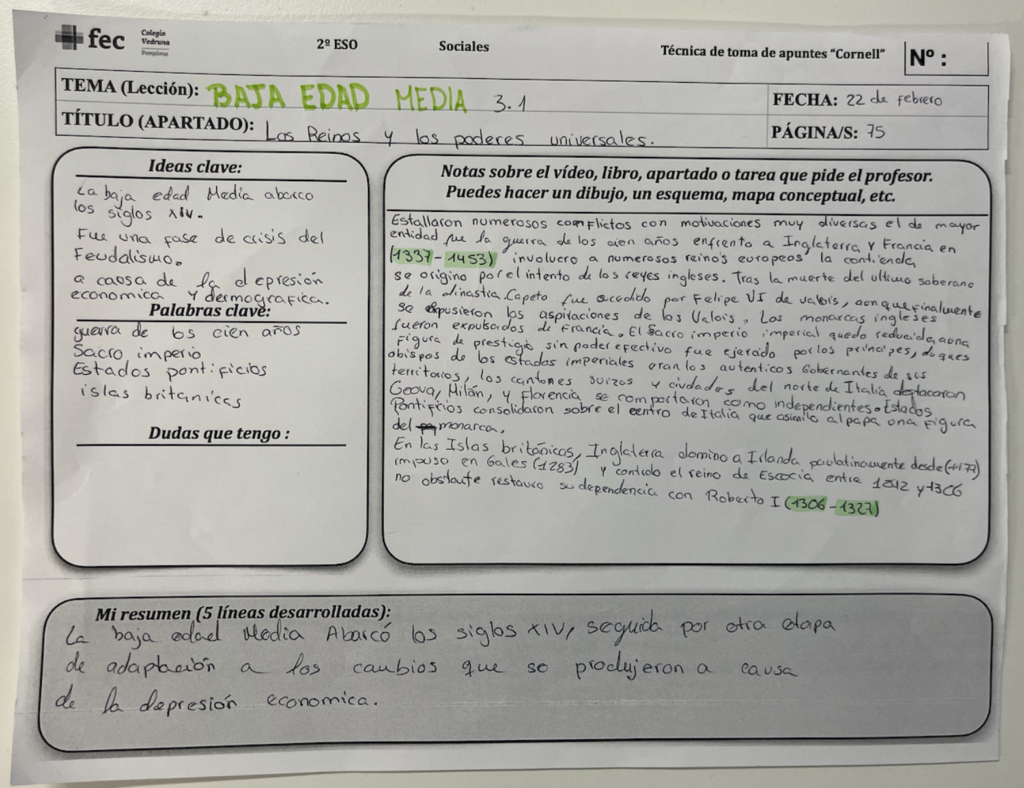 fec
Colegio
Vedruna
Pamplona
2º ESO
Sociales
Técnica de toma de apuntes "Cornell"
Nº :
TEMA (Lección): BAJA EDAD MEDIA 3.1
FECHA: 22 de febrero
TÍTULO (APARTADO): Los Reinos y los poderes universales.
PÁGINA/S: 75
Ideas clave:
La baja edad Media abarco
los siglos XIV.
Fue una fase de crisis del
Feudalismo.
a causa de la depresión
economica y demografica.
Palabras clave:
guerra de los cien años
Sacro imperio
Estados pontificios
islas britanicas
Dudas que tengo :
Notas sobre el vídeo, libro, apartado o tarea que pide el profesor.
Puedes hacer un dibujo, un esquema, mapa conceptual, etc.
Estallaron numerosos conflictos con motivaciones muy diversas el de mayor
entidad fue la guerra de los cien años enfrento a Inglaterra y Francia en
(1337-1453) involucro a numerosos reinos europeos la contienda
se origino por el intento de los reyes ingleses. Tras la muerte del ultimo soberano
de la dinastia Capeto fue sucedido por Felipe VI de Valois, aunque finalmente
se expusieron las aspiraciones de los Valois. Los monarcas ingleses
fueron expulsados de Francia. El Sacro imperio imperial quedo reducida, a una
Figura de prestigio sin poder efectivo fue ejerado por los principes, duques
obispos de los estados imperiales eran los autenticos Gobernantes de sus
territorios, los cantones suizos y ciudades del norte de Italia destacaron
Geova, Milán, y Florencia se comportaron como independientes. Estados
Pontificios consolidaron sobre el centro de Italia que asimilo al papa una figura
del monarca.
En las Islas británicas, Inglaterra domino a Irlanda paulatinamente desde
impuso en Gales (1283) y controlo el reino de Escocia entre y 1306
no obstante restauro su dependencia con Roberto I (1306-1327)
Mi resumen (5 líneas desarrolladas):
La baja edad Media Abarcó los siglos XIV, seguida por otra etapa
de adaptación a los cambios que se produjeron a causa
de la depresión economica.